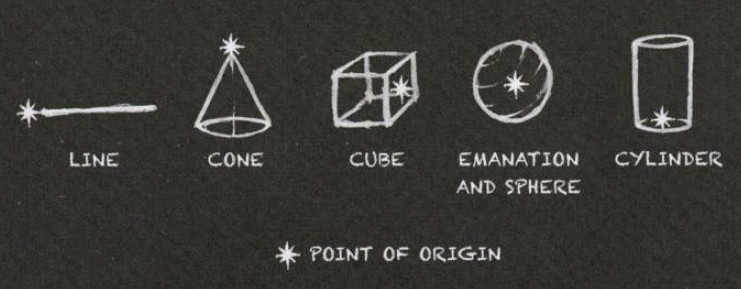 LINE
CONE
CUBE
EMANATION
AND SPHERE
CYLINDER
POINT OF ORIGIN